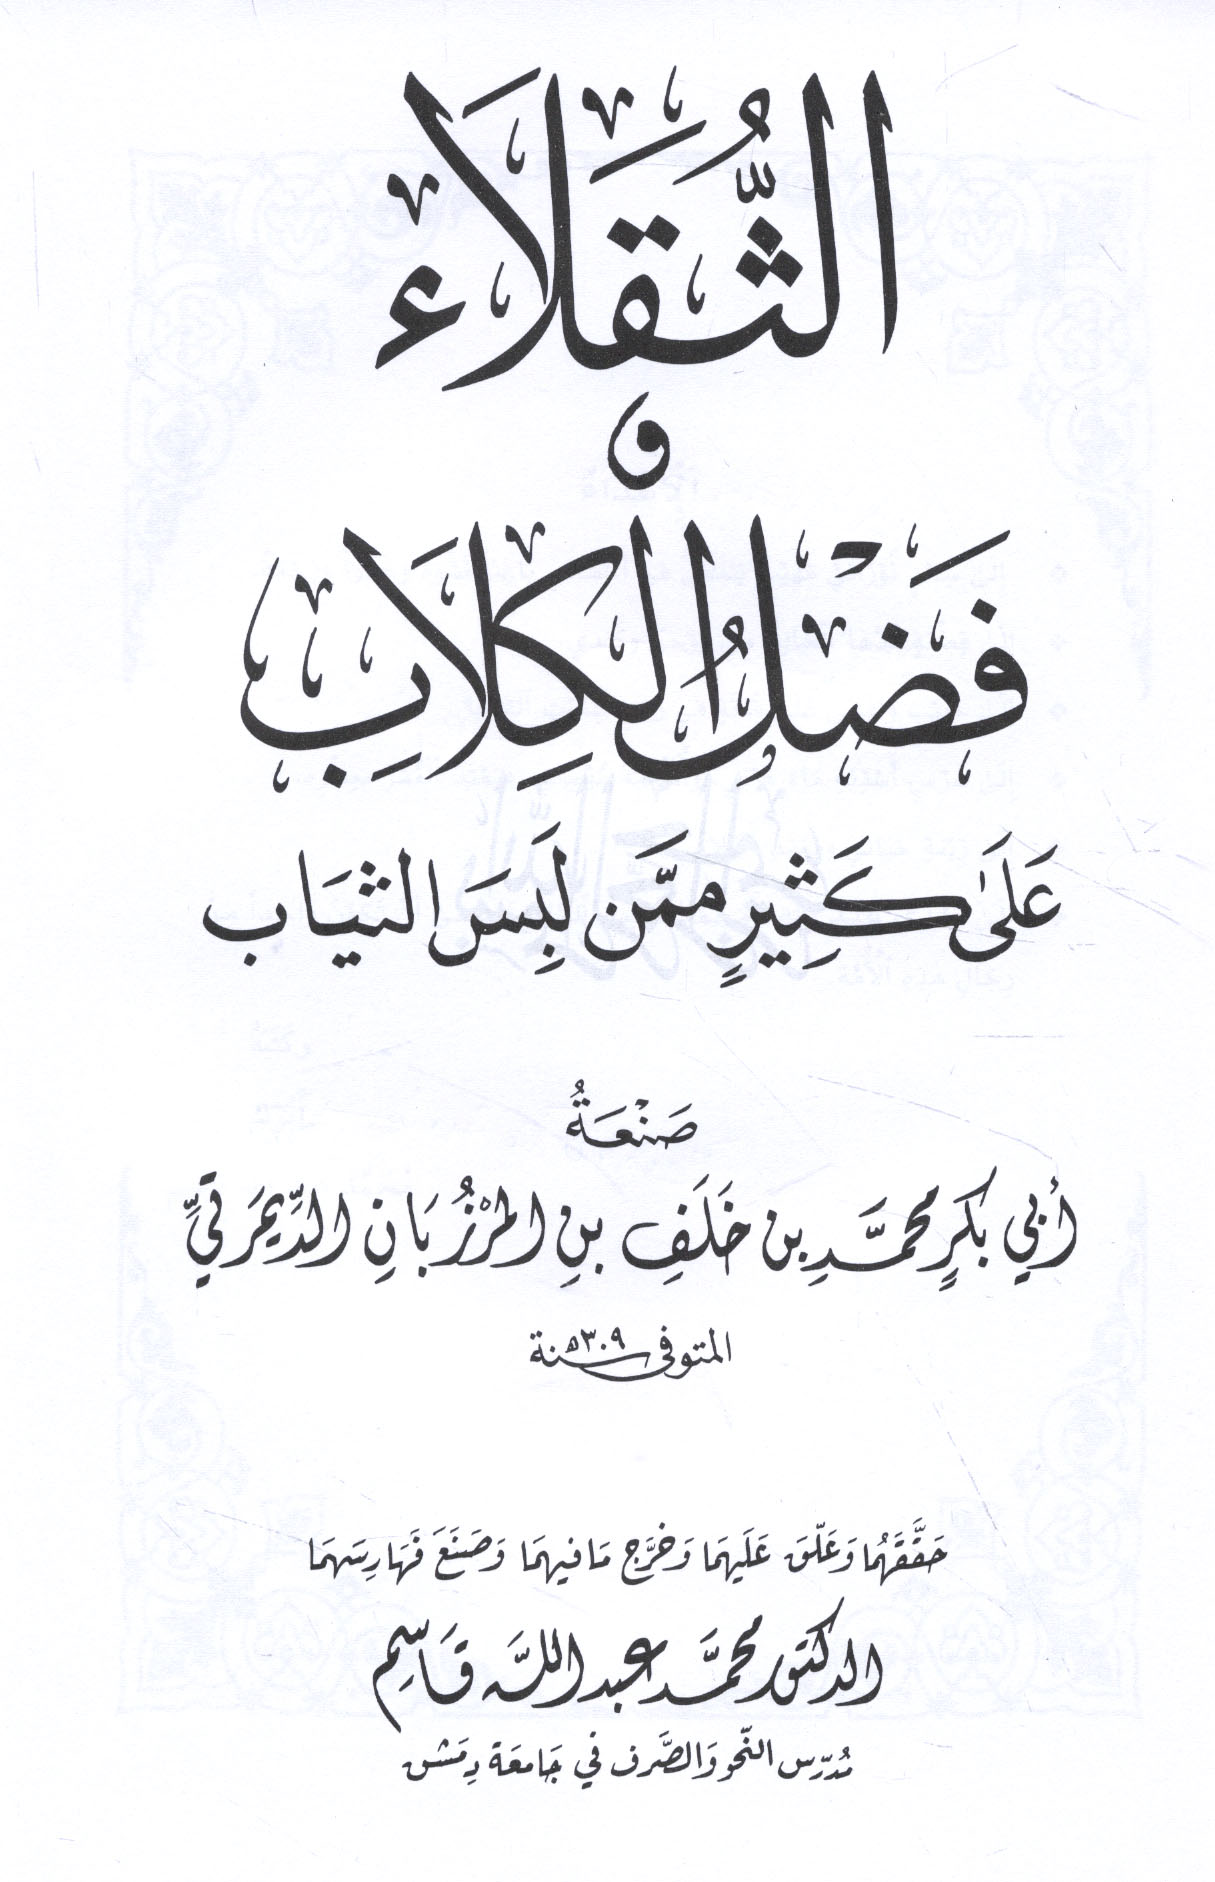 الثُّقَلَاءِ
وَ
فَضْلُ الْكِلَابِ
عَلَىٰ كَثِيرٍ مِمَّن لَبِسَ الثيَاب
صَنْعَةُ
أبي بَكرٍ محمَّدِ بن خَلَفِ بنِ المرْزُبَانِ الدِّيمَرتيِّ
المتوفى سنة ٣٠٩ه
حَقَّقَهُما وَعَلّقَ عَلَيهمَا وَخرَّج مَا فيهمَا وَصَنَعَ فَهَارِسَهمَا
الدكتور محمَّد عبد اللَّه قَاسِم
مُدرّس النّحو وَالصَّرف في جَامعَة دِمَشق